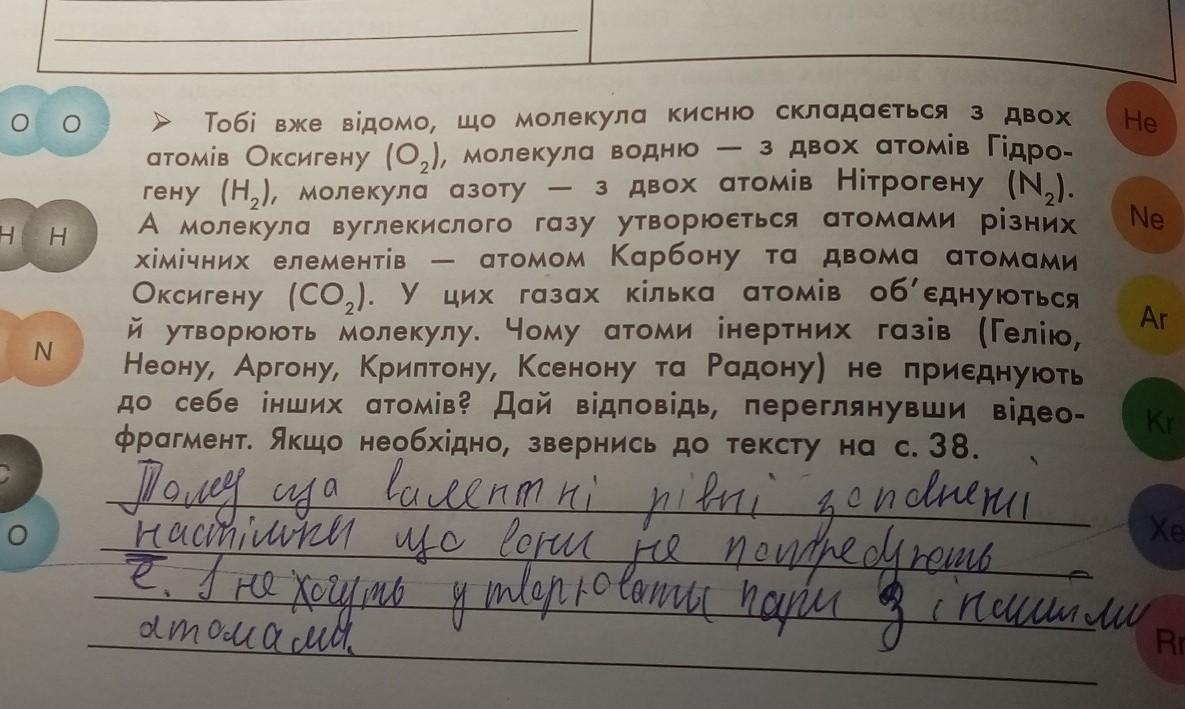 O O
H H
N
C
O
He
Ne
Ar
Kr
Xe
Rn
➢ Тобі вже відомо, що молекула кисню складається з двох
атомів Оксигену (O₂), молекула водню — з двох атомів Гідро-
гену (H₂), молекула азоту — з двох атомів Нітрогену (N₂).
А молекула вуглекислого газу утворюється атомами різних
хімічних елементів — атомом Карбону та двома атомами
Оксигену (CO₂). У цих газах кілька атомів об’єднуються
й утворюють молекулу. Чому атоми інертних газів (Гелію,
Неону, Аргону, Криптону, Ксенону та Радону) не приєднують
до себе інших атомів? Дай відповідь, переглянувши відео-
фрагмент. Якщо необхідно, звернись до тексту на с. 38.
Тому що валентні рівні заповнені
настільки що вони не потребують
е. І не хочуть утворювати пари з іншими
атомами.